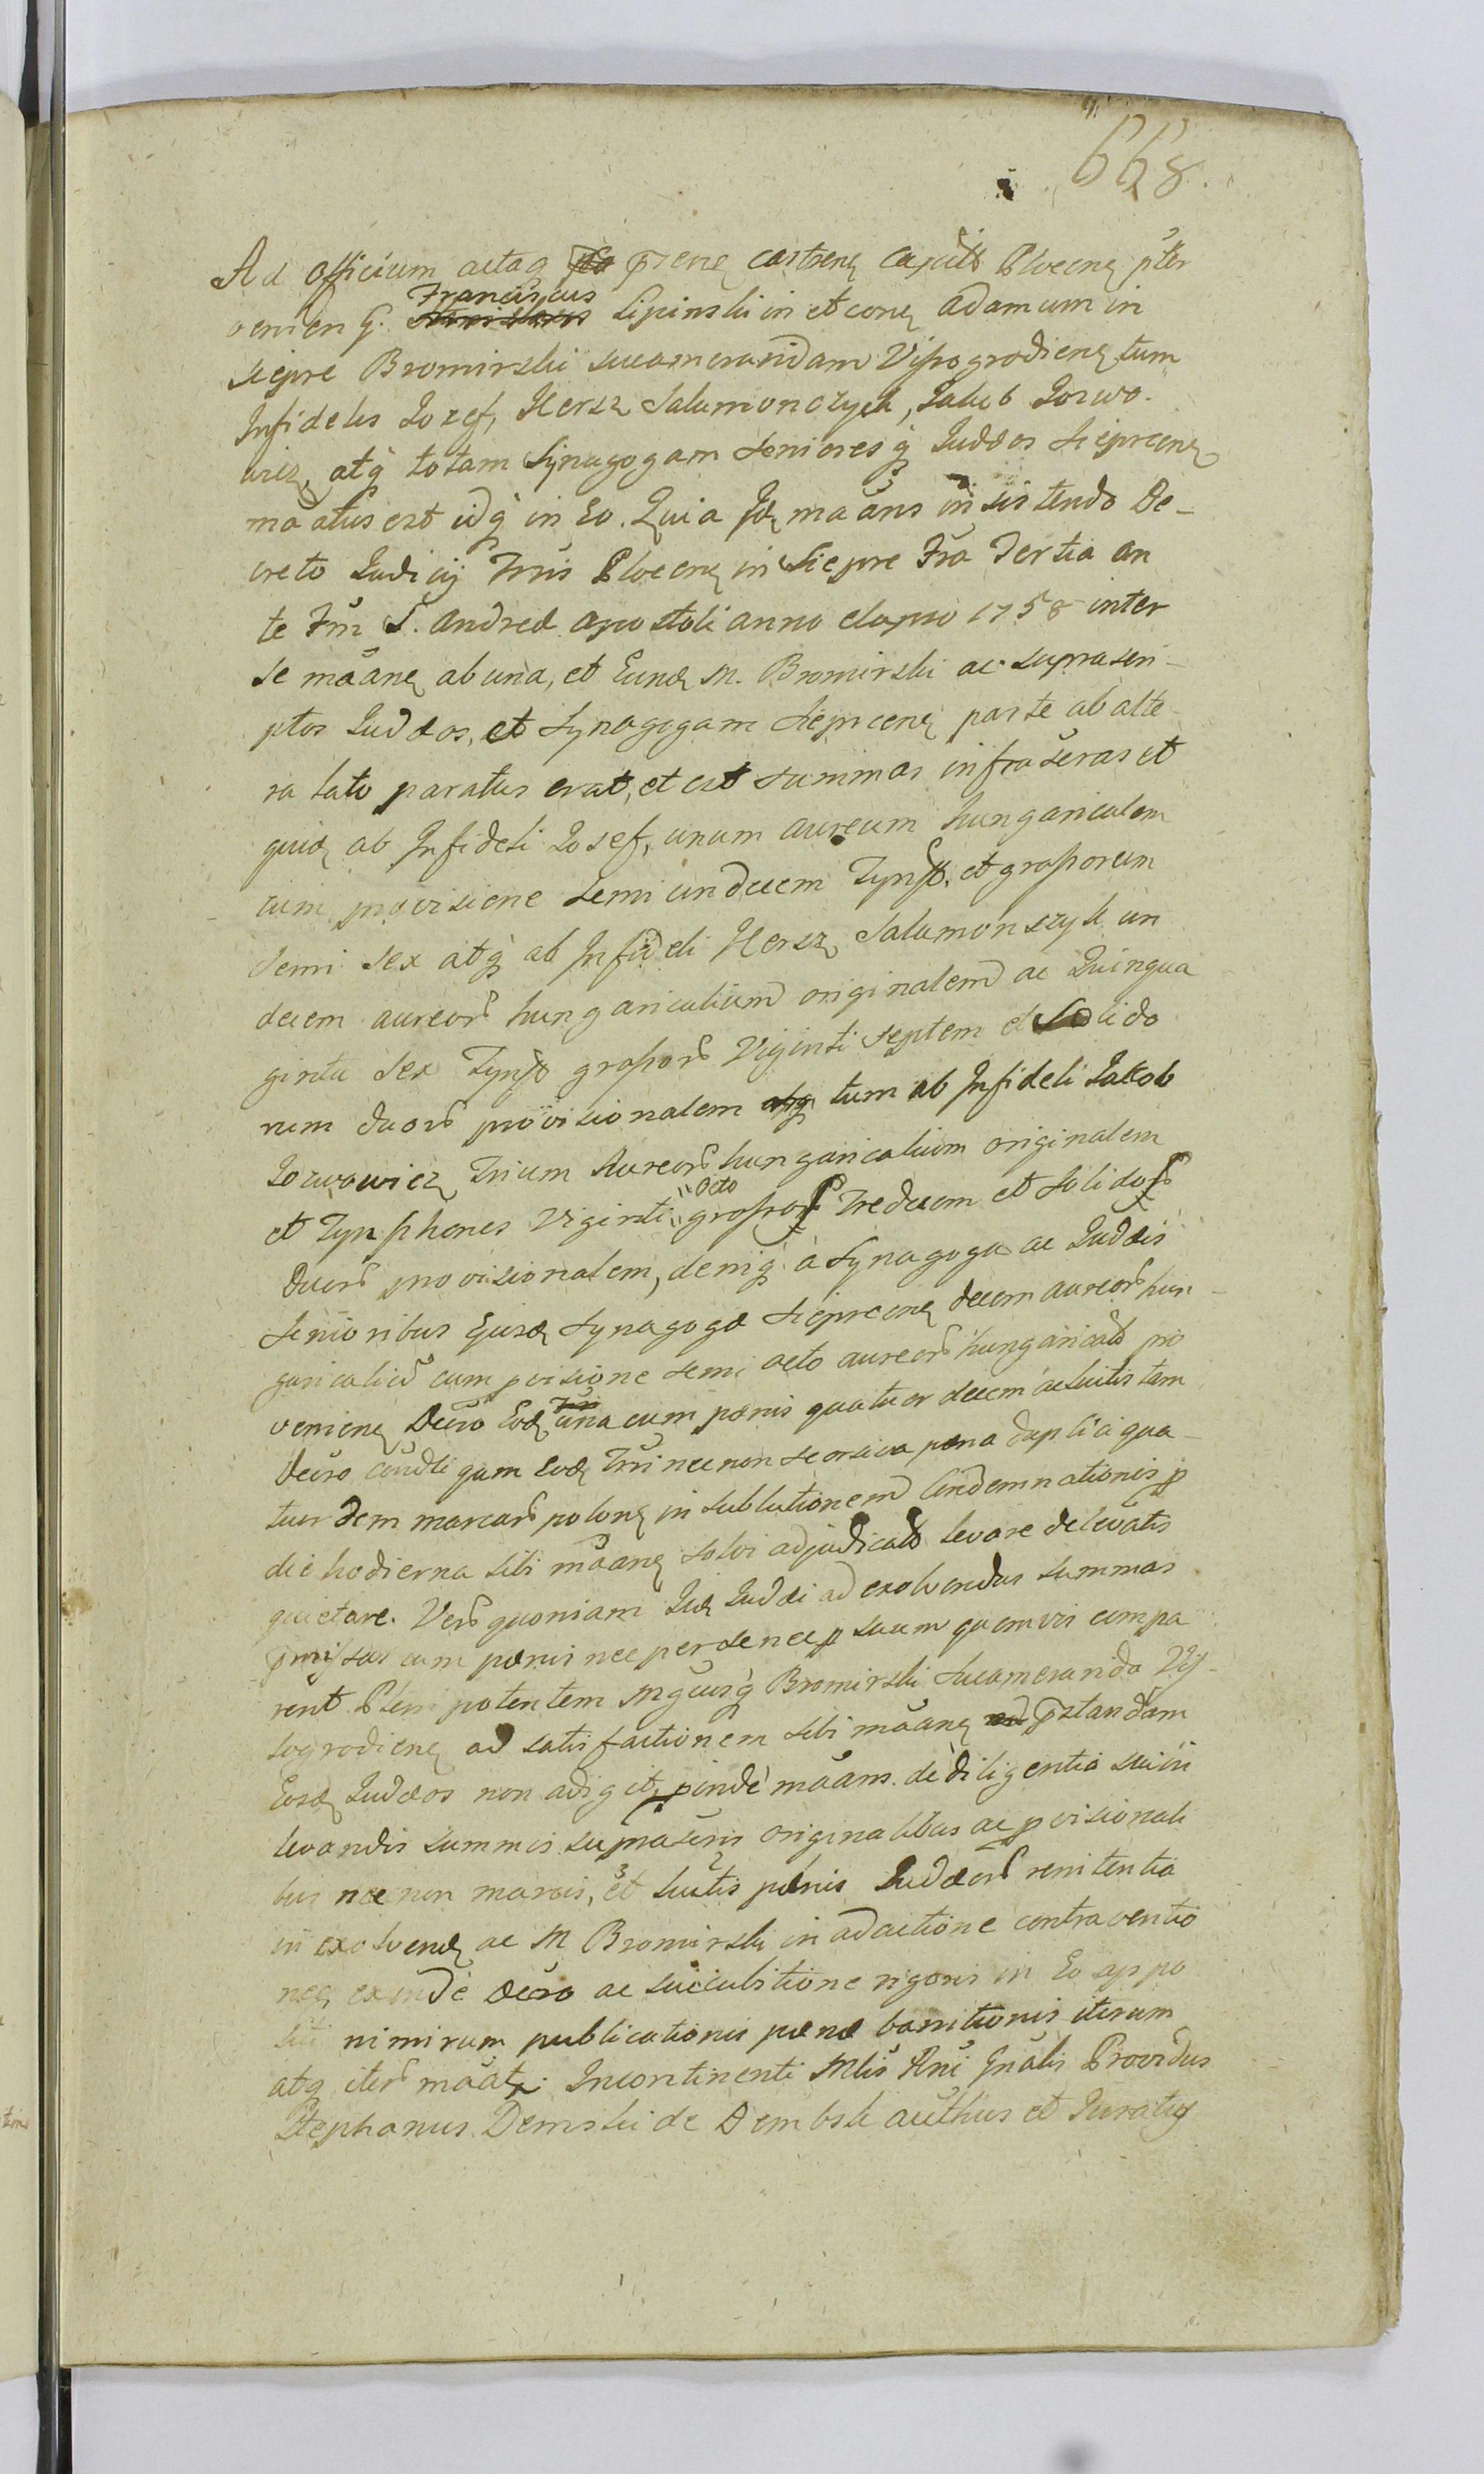 668.
Ad officium actaq p̄senę castrenę capītła Plocenę p̄ter
veniens G. Franciscus Lipinski in et conę Adamum in
Siepre Bromirski succamerandam Vissogrodienę tum
Infideles Iozef, Hersz Salamonczyk, Iakub Iozwo-
wicz, atq̃ totam Synagogam Senioresq̃ Iudæos Sieprcenę
māatus est idq̃ in Eo. Quia Idę māans in sistendo De-
creto Iudicij Trrīs Plocenę in Siepre Fra Tertia an
te Fm̄ S. Andreæ Apostoli anno elapso 1758 inter
se māanę ab una, et Eundę M. Bromirski ac suprascri-
ptos Iudæos, et Synagogam Sieprcenę parte ab alte-
ra lato paratus erat, et est summas infrascras et
quidę ab Infideli Iosef, unum aureum hungaricalem
cum provisione semi undecem Tynff. et grossorum
semi sex atq̃ ab Infideli Hersz Salamonczyk un
decem aureor hungaricalium originalem ac Quinqua
ginta sex Tynff grossor Viginti septem et Solido
rum duor provisionalem tum ab Infideli Iakob
Iozwowicz Trium Aureor hungaricalium originalem
et Tynphones Viginti Octo grossor Tredecem et Solidor
duor provisionalem, deniq̃ à Synagoga ac Iudæis
Senioribus Ejusdę Synagogæ Sieprcenę decem aureor hun-
garicaliū cum p̄visione semi octo aureor hungaricał pro
venienę Decro Eodę una cum pænis quatuordecem ac luitis tam
Decro quam eodę Trrī nec non seorsiva pæna duplici qua-
tuordem marcar polonę in sublutionem Condemnationis p
die hodierna sibi māanę solvi adjudicatas levare de levatis
quietare. Vero quoniam Iidę Iudæi ad exolvendas summas
p̄missas cum pænis nec per se nec p suum quemvis compa
rent Plenipotentem Mgcusq̃ Bromirski Succamerando Vis-
sogrodienę ad satisfactionem sibi māanę p̄standam
Eosdę Iudæos non adigit, pindè māans. de diligentia sui in
levandis summis suprascris originalibus ac p̄visionali
bus nec non marcis, et luitis pænis Iudæor renitentia
in exolvendę ac M Bromirski in adactione contraventio
neq exinde Decro ac succubitione rigoris in Eo appo
siti nimirum publicationis pænæ bannitionis iterum
atq iter māatr. Incontinenti Mlis Rni Gnalis Providus
Stephanus Demski de Dembsk authus et Iuratus